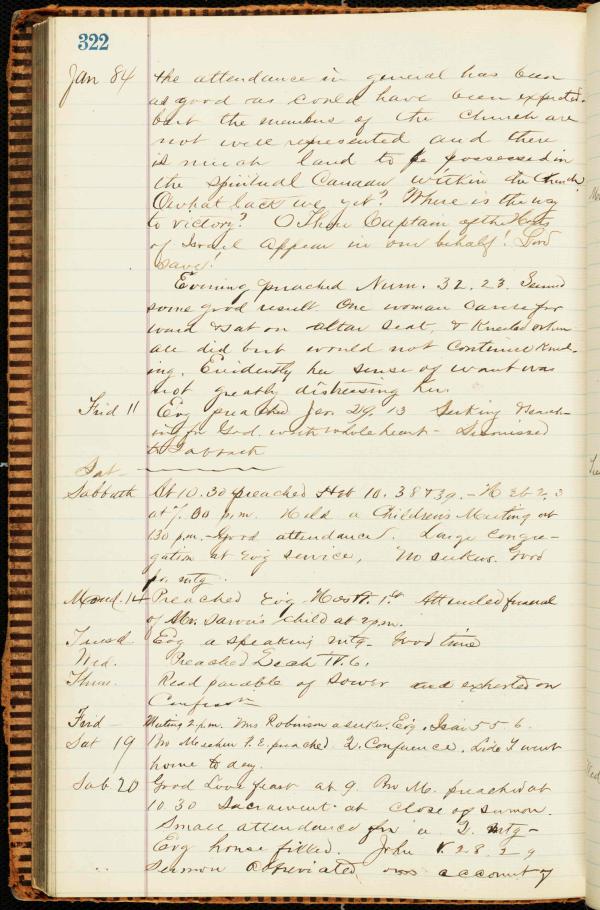 322
Jan 84 the attendance in general has been
as good as could have been expected.
but the members of the Church are
not well represented and there
is much land to be possessed in
the Spiritual Canaan within the Church
O what lack we yet? Where is the way
to victory? O Thou Captain of the Hosts
of Israel appear in our behalf! Lord
save!
Evening preached Num. 32. 23. Seemed
some good result. One woman came for
ward & sat on altar seat, & kneeled when
all did but would not continue kneel-
ing. Evidently her sense of want was
not greatly distressing her.
Frid 11 Evg preached Jer. 29, 13 Seeking & search-
ing for God. with whole heart - Dismissed
to Sabbath
Sat
Sabbath At 10.30 preached Heb 10. 38 & 39. - Heb 2, 3
at 7.00 p.m. Held a Children's Meeting at
130 p.m. - Good attendance. Large Congre-
gation at Evg service, No seekers. Good
pr. mtg.
Mond. 14 Preached Evg 1st Attended funeral
of Mr. child at 2 p.m.
Tuesd. Evg a speaking mtg - Good time
Wed. Preached 6.
Thurs. Read parable of Sower and exhorted on

Frid Meeting 2 p.m. Mrs Robinson a seeker. Evg. Isai 55 6.
Sat 19 Bro P. E. preached 2. Confuence. Lide I went
home to day.
Sab. 20 Good Love feast at 9. Bro M. preached at
10.30 Sacrament at close of sermon.
Small attendance for a Q. mtg -
Evg house filled. John 28. 29
Sermon abbreviated on account of